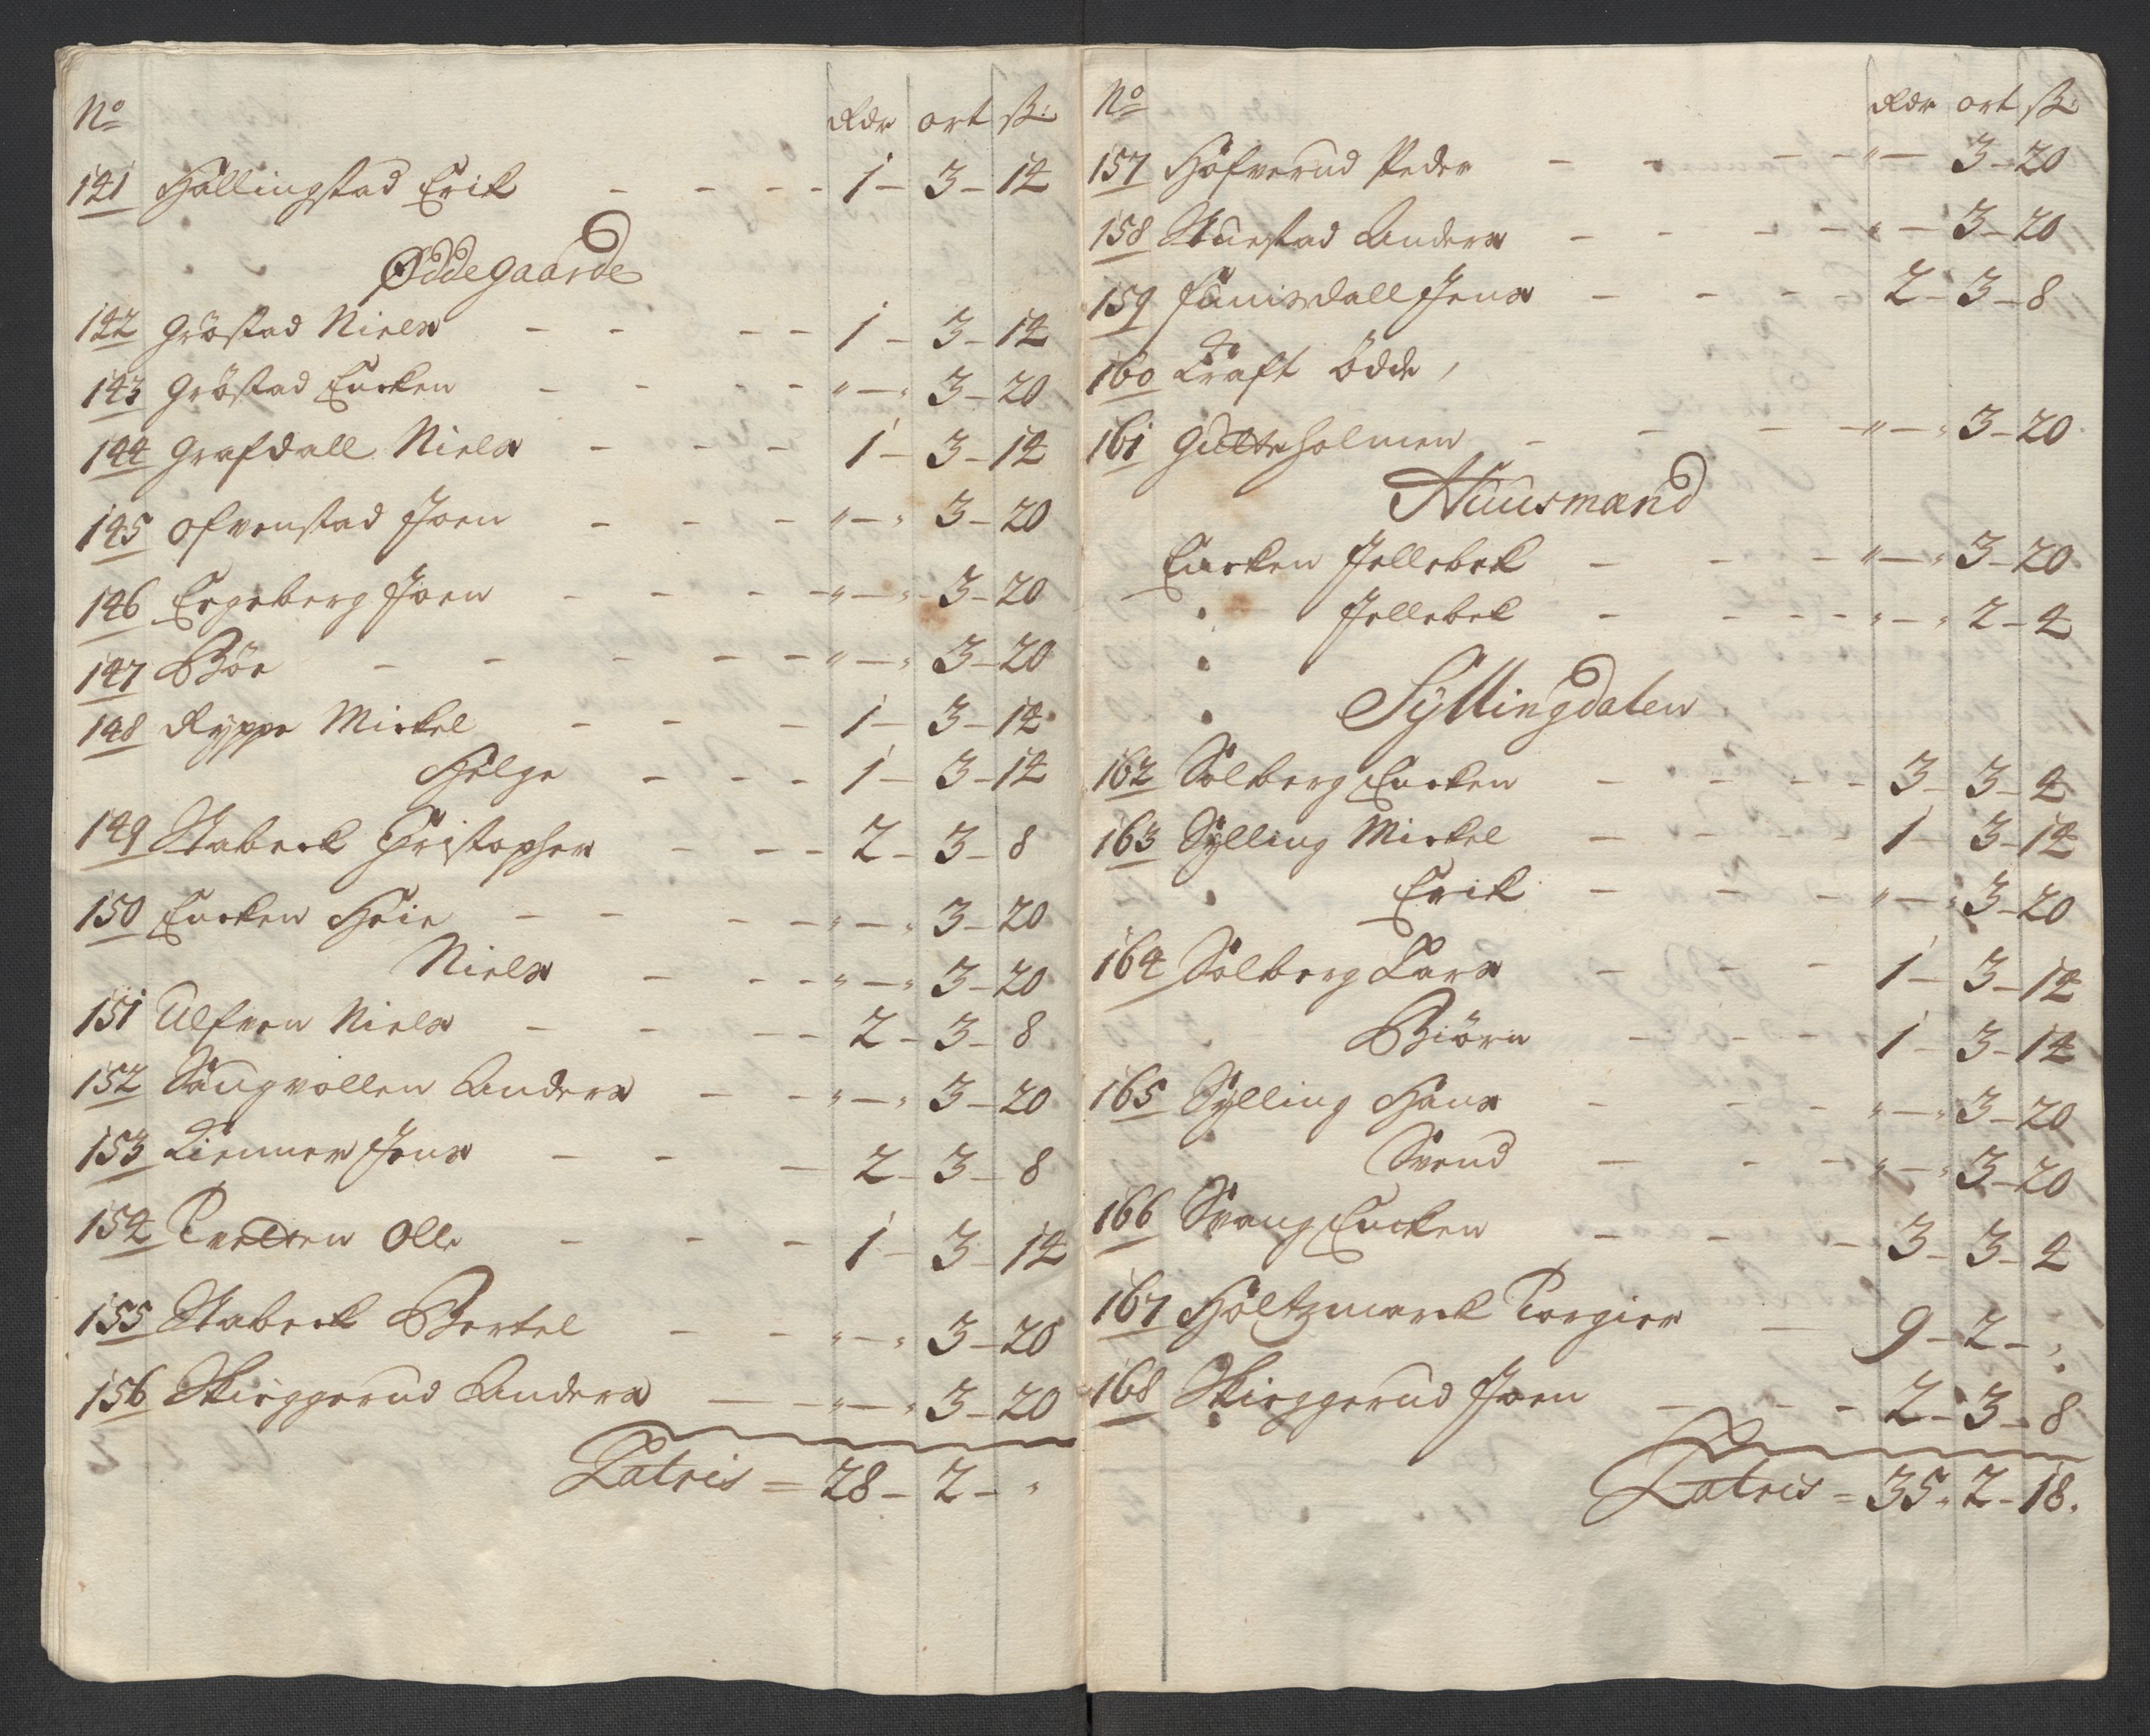 No Rdr ort ß:
141 Hallingstad Erik - - - - 1 - 3 - 14
Øddegaarde
142 Gröstad Niels - - - - 1 - 3 - 14
143 Gröstad Encken - - - - " - " 3 - 20
144 Grafdall Niels - - - 1 - 3 - 14
145 Ofvenstad Joen - - - " - " 3 - 20
146 Engeberg Joen - - - - " - " 3 - 20
147 Böe - - - - - " - " 3 - 20
148 Ryppe Mickel - - - 1 - 3 - 14
Helge - - - 1 - 3 - 14
149 Stabeck Christopher - - - 2 - 3 - 8
150 Encken Heie - - - - " - " 3 - 20
Niels - - - " - " 3 - 20
151 Ulfven Niels - - - - 2 - 3 - 8
152 Saugvollen Anders - - " - " 3 - 20
153 Lienner Jens - - - 2 - 3 - 8
154 Tvetten Olle - - - 1 - 3 - 14
155 Stabeck Bertel - - " - " 3 - 20
156 Skieggerud Anders - - " - " 3 - 20
Latris = 28 - 2 - "
No Rdr ort ß:
157 Hafverud Peder - - - - " - 3 - 20
158 Stuestad Anders - - - - " - 3 - 20
159 Jens - - - - 2 - 3 - 8
160 Kraft Ödde,
161 Gutteholmen - - - - " - " 3 - 20
Huusmænd
Encken Jellebek - - - " - " 3 - 20
Jellebek - - - - " - " 2 - 4
Syllingdalen
162 Solberg Encken - - - - 3 - 3 - 4
163 Sylling Mickel - - - - 1 - 3 - 14
Erik - - - " - " 3 - 20
164 Solberg Lars - - - 1 - 3 - 14
Biörn - - - 1 - 3 - 14
165 Sylling Hans - - - " - " 3 - 20
Svend - - - " - " 3 - 20
166 Svang Encken - - - 3 - 3 - 4
167 Holtzmarck Torgier - 9 - 2 - "
168 Skieggerud Joen - - - 2 - 3 - 8
Latris = 35 - 2 - 18.